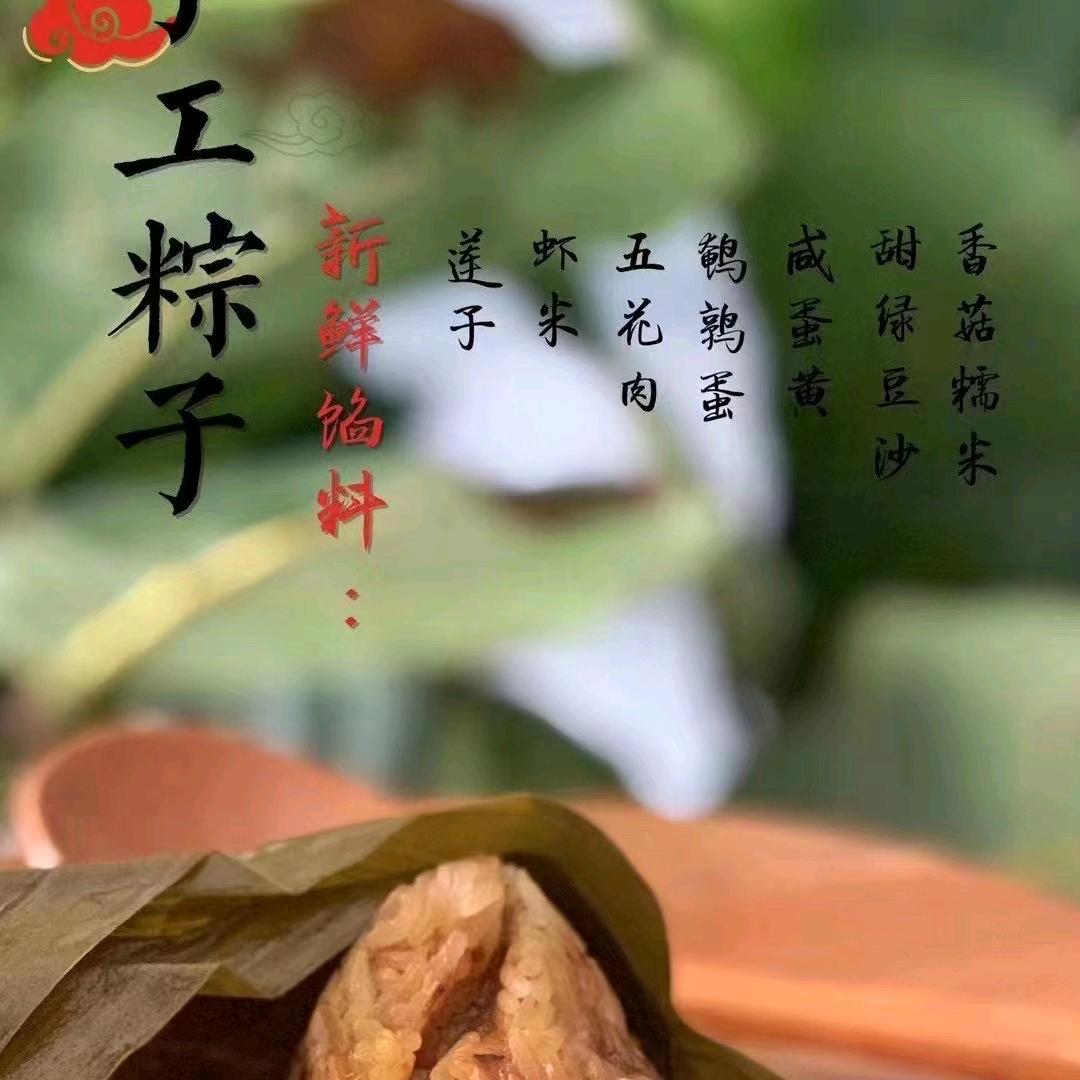 工粽子
新鲜馅料：
莲子
虾米
五花肉
鹌鹑蛋
咸蛋黄
甜绿豆沙
香菇糯米